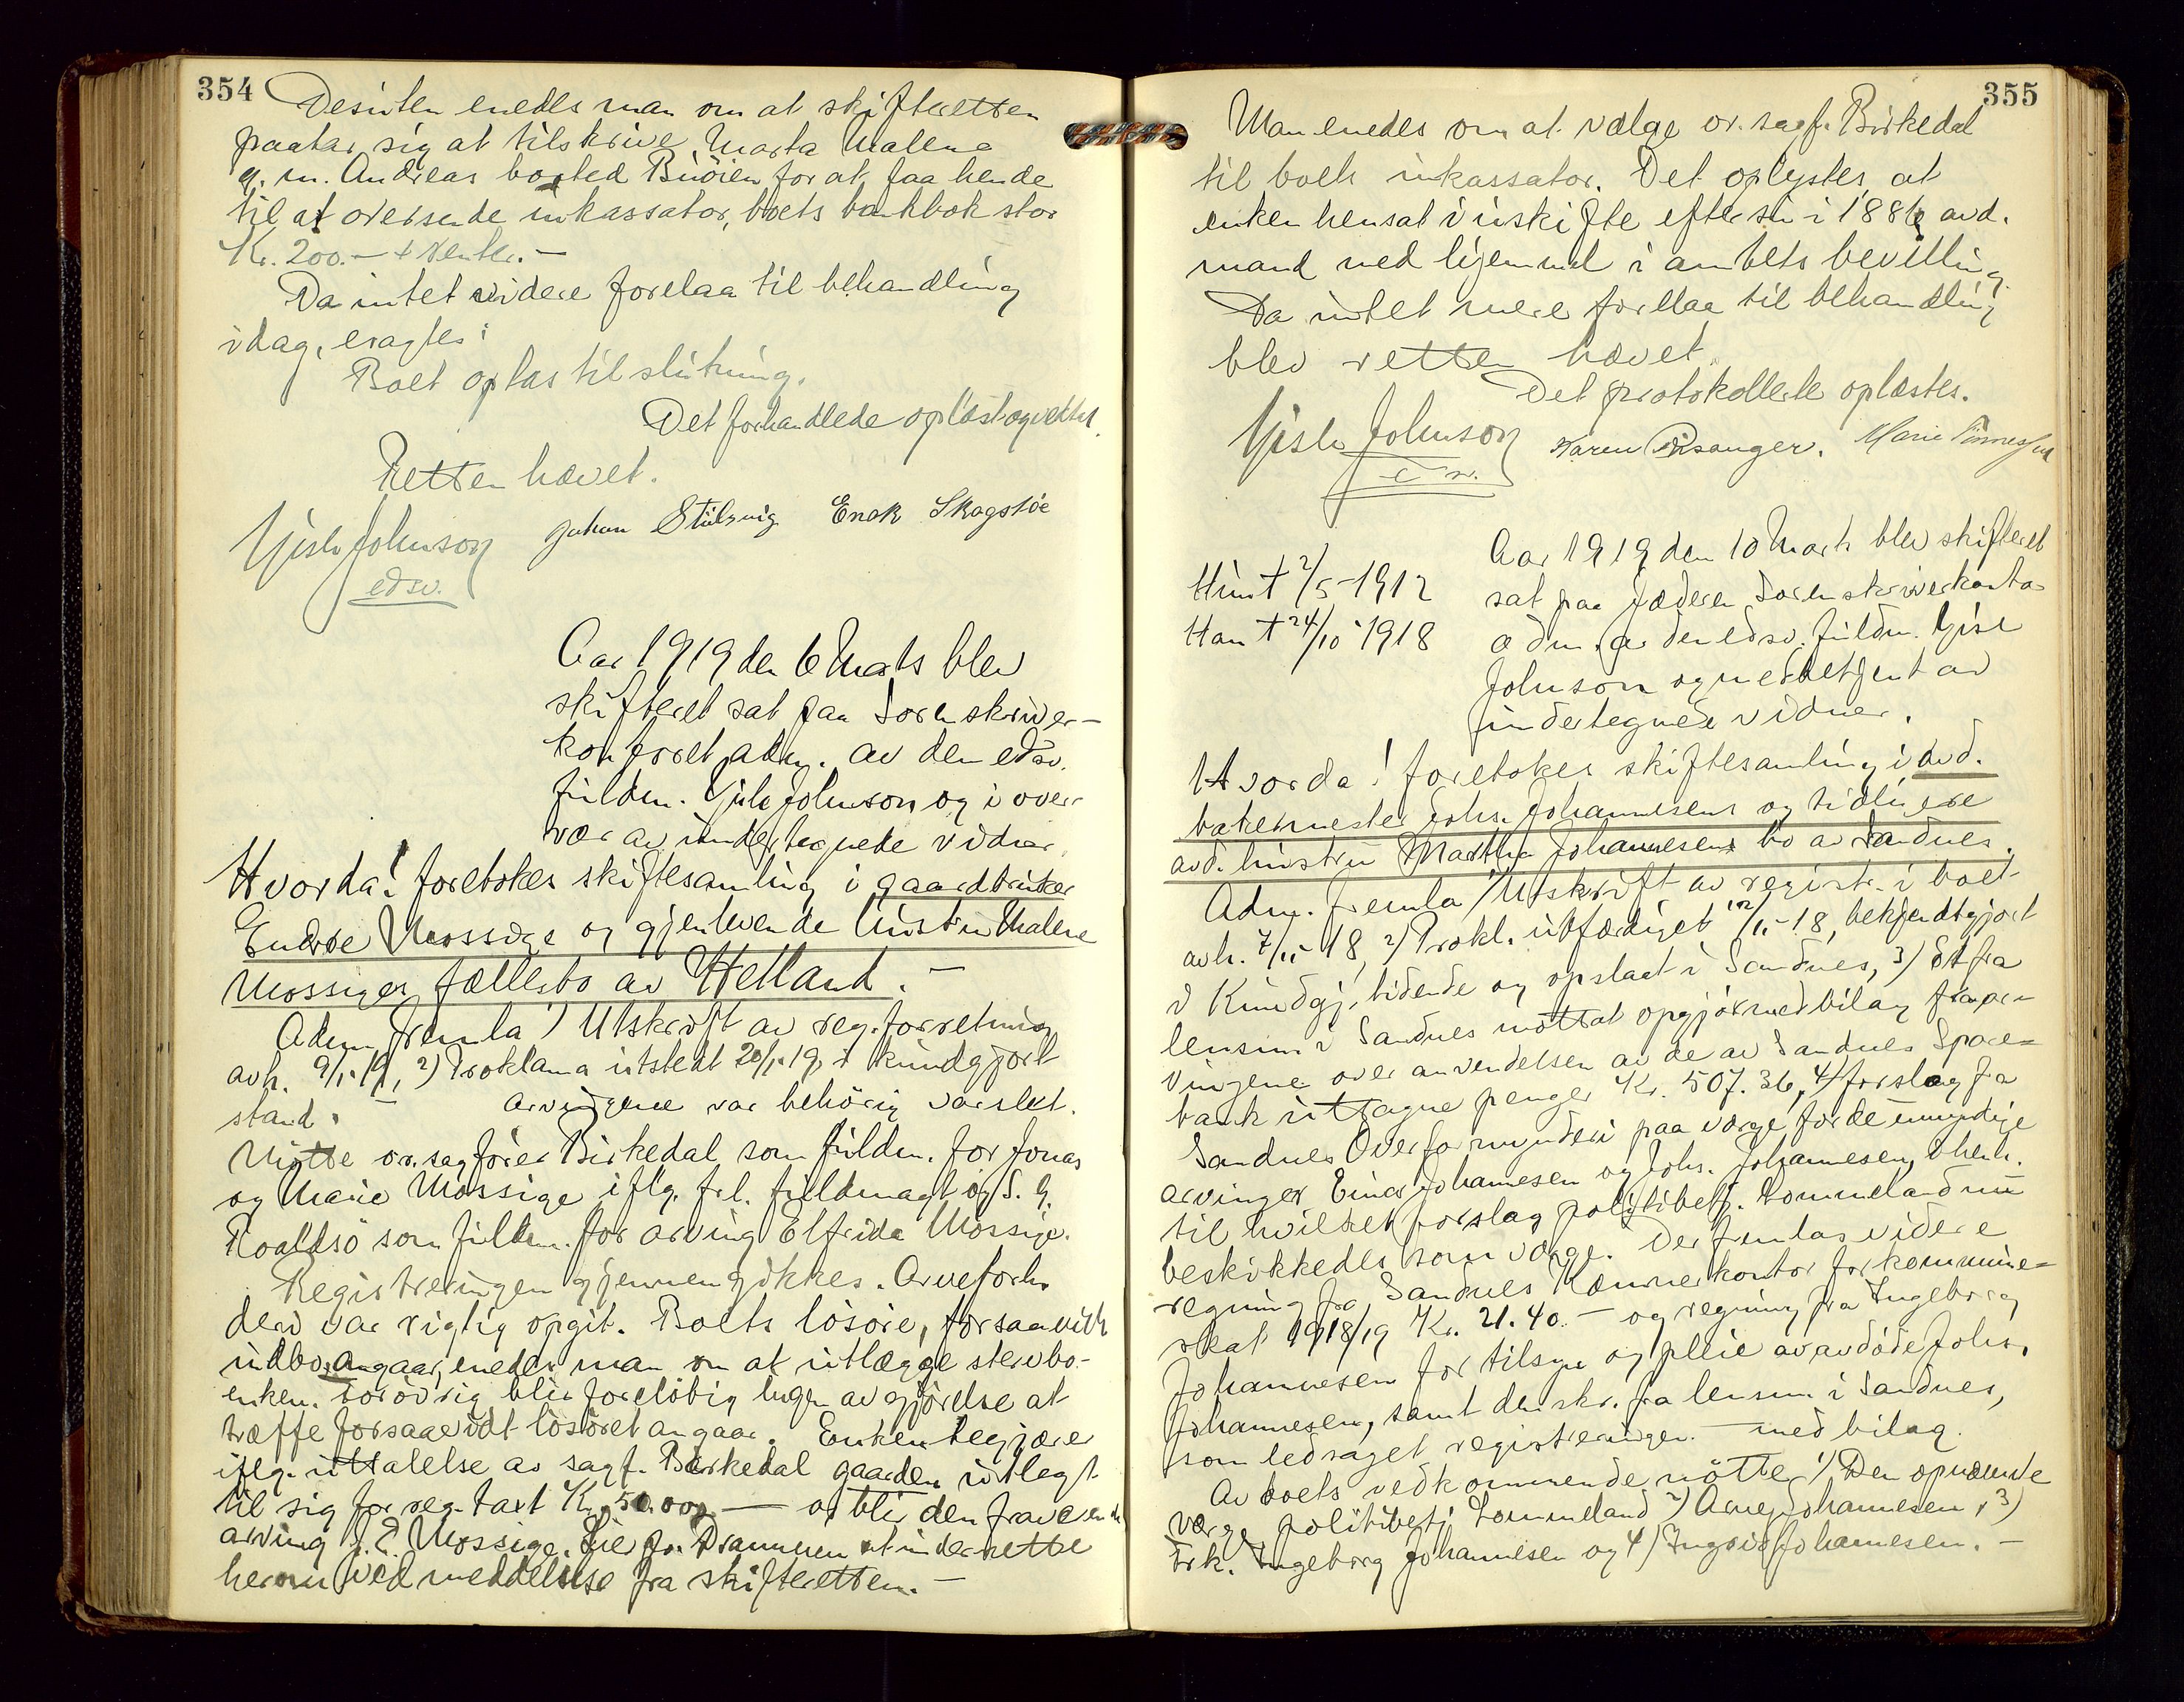 354
Desuten enedes man om at skifteretten
paatar sig at tilskrive Marta Malene
g. m. Andreas bosted Buöien for at faa hende
til at oversende inkassator, boets bankbok stor
Kr. 200.- + renter.-
Da intet videre forelaa til behandling
idag, eragtes:
Boet optas til slutning.
Det forhandlede oplæst og vedtat.
Retten hævet.
Gisle Johnson Johan Stülsvig Enok Skagstöe
edsv.
Aar 1919 den 6 Marts blev
skifteret sat paa Sorenskriver-
kontoret adm. av den edsv.
fuldm. Gisle Johnson og i over-
vær av undertegnede vidner
Hvorda! foretokes skiftesamling i gaardbruker
Endre Mossige og gjenlevende hustru Malene
Mossiges fællesbo av Hetland.-
Adm. fremla 1) Utskrift av reg. forretning
avh. 9/1-19, 2) Proklama utstedt 20/1-19, i kundgjort
stand. arvingene var behörig varslet.
Mötte or. sagförer Birkedal som fuldm. for Jonas
og Marie Mossige iflg. frl. fuldmagt og S. G.
Roaldsö som fuldm. for arving Elfrida Mossige.
Registreringen gjennemgikkes. Arveforhol
deri var rigtig opgit. Boets lösöre, forsaavidt
indbo angaar, enedes man om at utlægge stervbo-
enken. Forövrig blir foreløbig ingen avgjörelse at
træffe forsaavidt lösöret angaar. Enken begjærer
iflg. uttalelse av sagf. Birkedal gaarden utlegt
til sig for reg. taxt Kr. 50.000 — og blir den fraværende
arving J. E. Mossige, Lier pr. Drammen at underrette
herom ved meddelelse fra skifteretten.-
355
Man enedes om at vælge or. sagf. Birkedal
til boets inkassator. Det oplystes at
enken hensat i uskifte efter sin i 1886 avd.
mand med hjemmel i amtets bevilling.
Da intet mere forelaa til behandling
blev retten hævet.
Det protokollerte oplæstes.
Gisle Johnson Karen Risanger. Marie Tönnessen
e.v.
Aar 1919 den 10 Marts blev skifteret
Hun † 2/5-1912 sat paa Jæderen Sorenskriverkontor
Han † 24/10-1918 adm. av den edsv. fuldm. Gisle
Johnson og medbetjent av
undertegnede vidner.
Hvorda! foretokes skiftesamling i avd.
bakermester Johs. Johannesens og tidligere
avd. hustru Martha Johannesens bo av Sandnes.
Adm. fremla 1) Utskrift av registr. i boet
avh. 7/11-18, 2) Prokl. utfærdiget 12/11-18, bekjendtgjort
i Kundgj. tidende og opslaat i Sandnes, 3) Et fra
lensm. i Sandnes mottat opgjör med bilag fra ar-
vingene over anvendelsen av de av Sandnes Spare-
bank uttagne penger Kr. 507.36, 4) forslag fra
Sandnes Overformynderi paa værge for de umyndige
arvinger Einar Johannesen og Johs. Johannesen, ohenh.
til hvilket forslag politibetj. Lommeland nu
beskikkedes som værge. Der fremlas videre
regning fra Sandnes Kæmnerkontor for kommune-
skat 1918/19 Kr. 21.40.- og regning fra Ingeborg
Johannesen for tilsyn og pleie av avdöde Johs.
Johannesen, samt den skr. fra lensm. i Sandnes,
som ledsaget registreringen med bilag.
Av boets vedkommende mötte 1) Den opnævnte
værge politibetj. Lommeland 2) Arne Johannesen, 3)
Frk. Ingeborg Johannesen og 4) Ingvid Johannesen.-